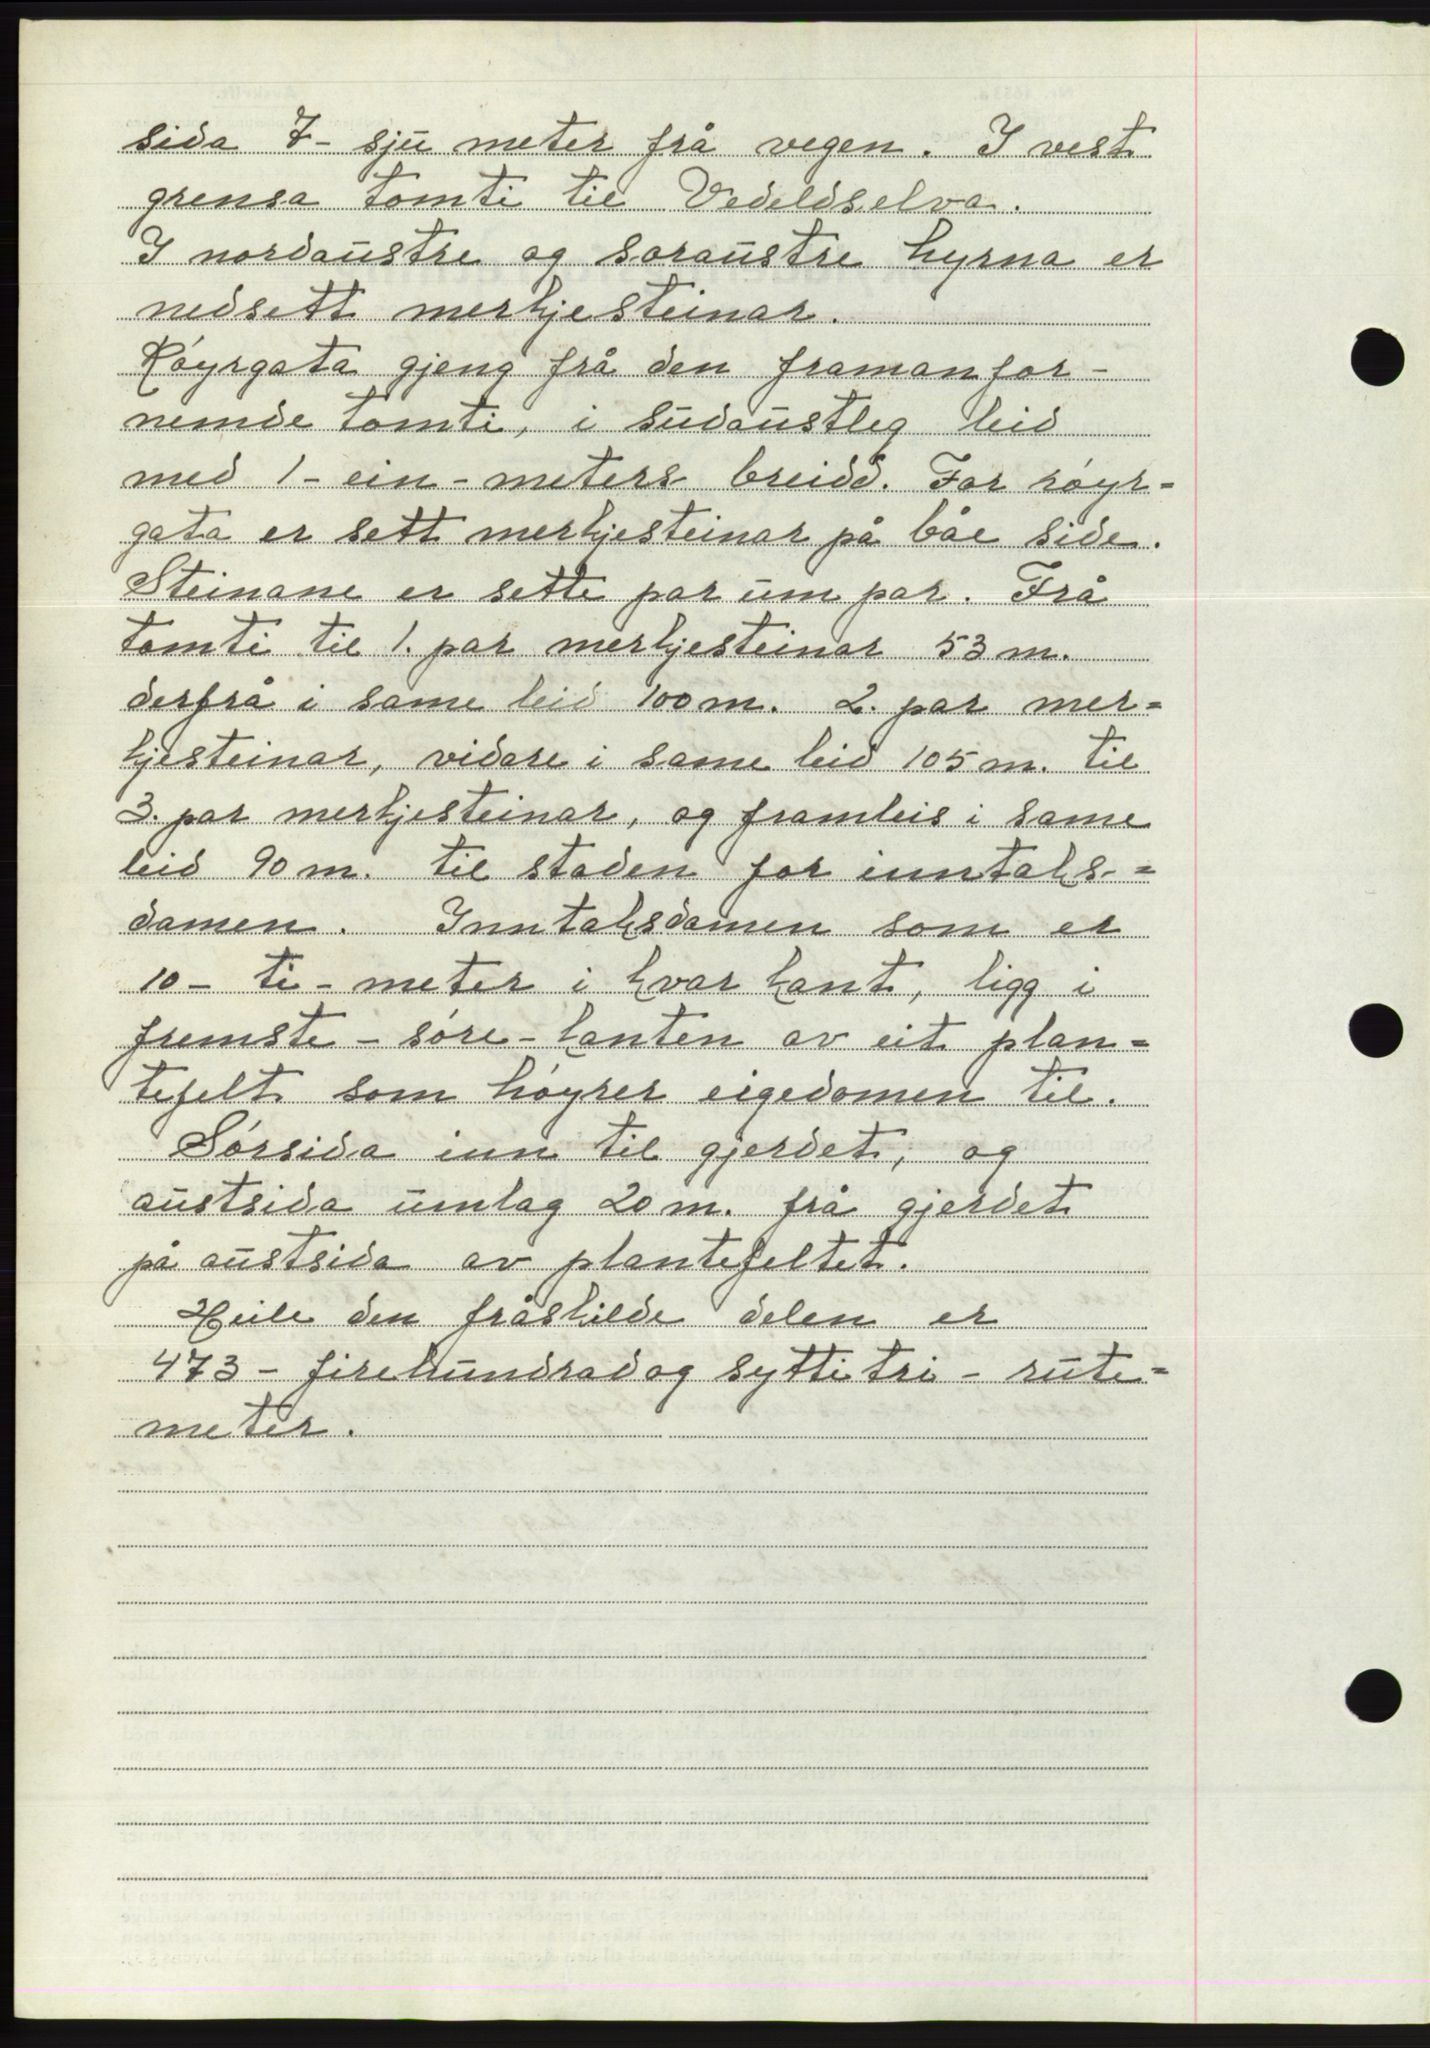 sida 7- sjū meter frå vegen. I vest
grensa tomti til Vedeldselva.
I nordaūstre og soraūstre hyrna er
nedsett merkjesteinar.
Róyrgata gjeng frå den framanfor-
nemde tomti, i sūdaūstleg leid
med 1- ein - meters breidd. For róyr=
gata er sett merkjesteinar på båe side.
Steinane er sette par ūm par. Frå
tomti til 1. par merkjesteinar 53 m.
derfrå i same leid 100 m. 2. par mer=
kjesteinar, vidare i same leid 105 m. til
3. par merkjesteinar, og framleis i same
leid 90 m. til staden for inntaks-=
damen. Inntaksdamen som er
10- ti- meter i kvar kant, ligg i
fremste - sóre - kanten av eit plan=
tefelt som hóyrer eigedomen til.
Sórsida inn til gjerdet, og
aūstsida ūmlag 20 m. frå gjerdet
på aūstsida av plantefeltet.
Heile den fråskilde delen er
473 - firehūndrad og sytti tri - rūte=
meter.